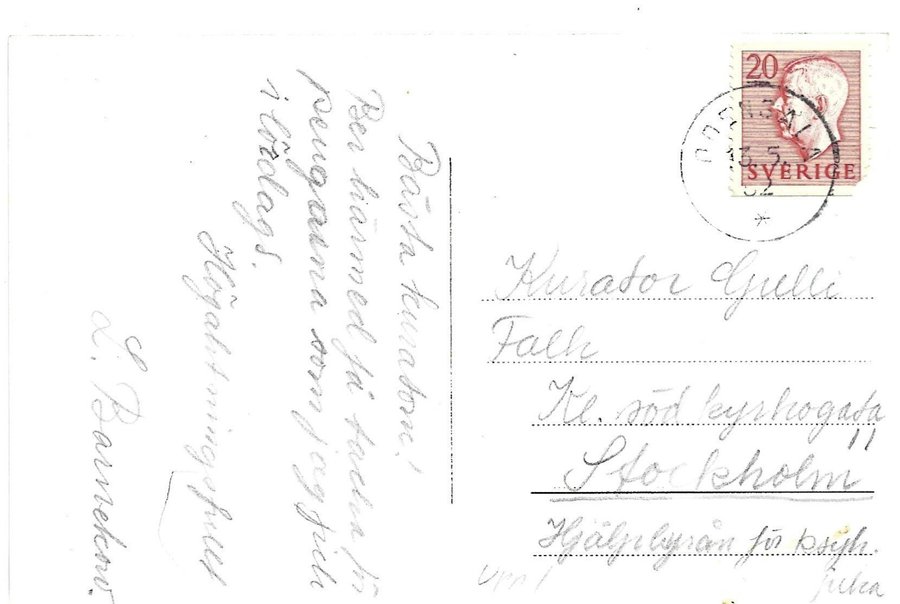 Bästa kurator!
Ber härmed få tacka för
pengarna som jag fick
i lördags.
Högaktningsfullt
L. Barnekow.
20
SVERIGE
5.
Kurator Gulli
Falk
Kl. söd kyrkogata
11
Stockholm
Hjälpbyrån för psyk.
sjuka